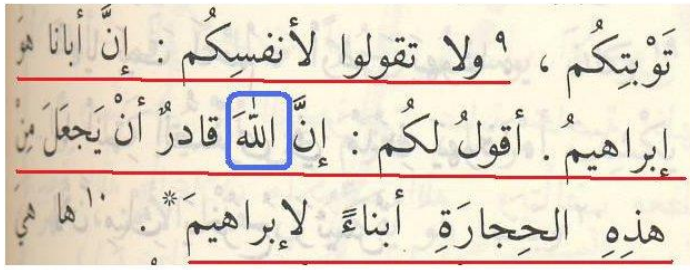 تَوْبتِكُم ، ٩ ولا تقولوا لأنفسِكُم : إنَّ أبانا هوَ
إبراهيمُ . أقولُ لكُم : إنَّ اللّٰهَ قادرٌ أنْ يَجعَلَ مِنْ
هذِهِ الحِجارَةِ أبناءً لإبراهيمَ * . ١٠ ها هيَ